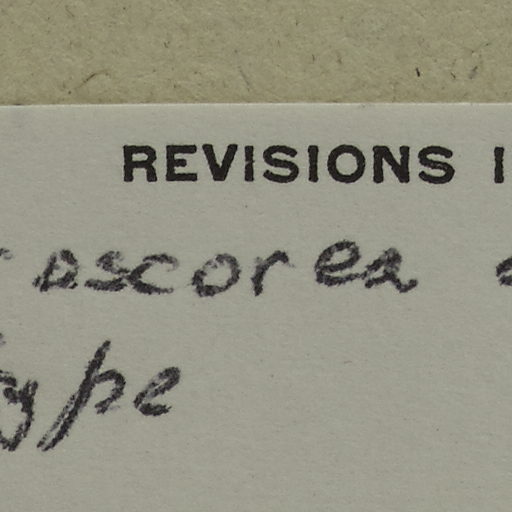 REVISIONS I
oscorea
type